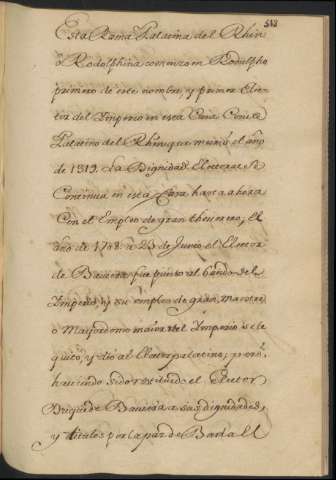 513
Esta Rama Palatina del Rhin
ô Rodolphina comenzo en Rodulpho
primero de este nombre, y primer Elec-
tor del Imperio en esta Casa Conde
Palatino del Rhin que murió el año
de 1319. La Dignidad Electoral se
Continua en esta Casa hasta ahora
Con el Empleo de gran thesorero, El
año de 1708. à 23 de Junio el Elector
de Baviera fue puesto al Vando del
Imperio, y su empleo de gran Maestre
o Maiordomo maior del Imperio se le
quitó, y dió al Elector palatino, pero
haviendo sido restituido el Elector
Duque de Baviera a sus dignidades,
y titulos por la paz de Bada El